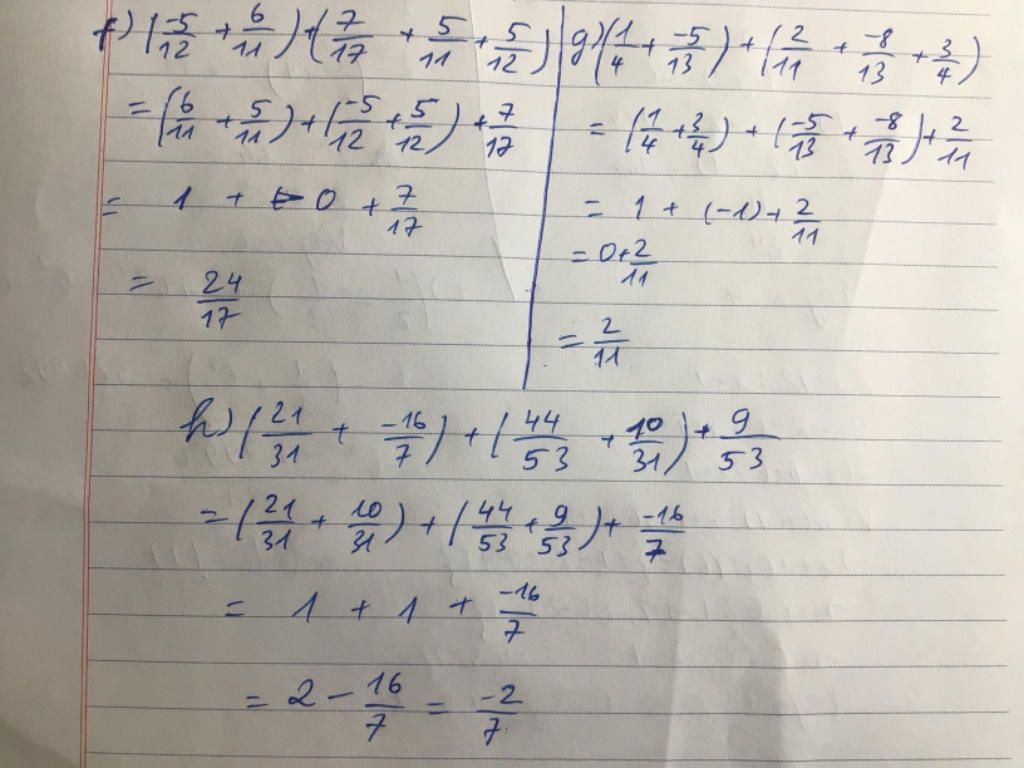 f) (-5/12 + 6/11) + (7/17 + 5/11 + 5/12)
= (6/11 + 5/11) + (-5/12 + 5/12) + 7/17
= 1 + 0 + 7/17
= 24/17
g) (1/4 + -5/13) + (2/11 + -8/13 + 3/4)
= (1/4 + 3/4) + (-5/13 + -8/13) + 2/11
= 1 + (-1) + 2/11
= 0 + 2/11
= 2/11
h) (21/31 + -16/7) + (44/53 + 10/31) + 9/53
= (21/31 + 10/31) + (44/53 + 9/53) + -16/7
= 1 + 1 + -16/7
= 2 - 16/7 = -2/7